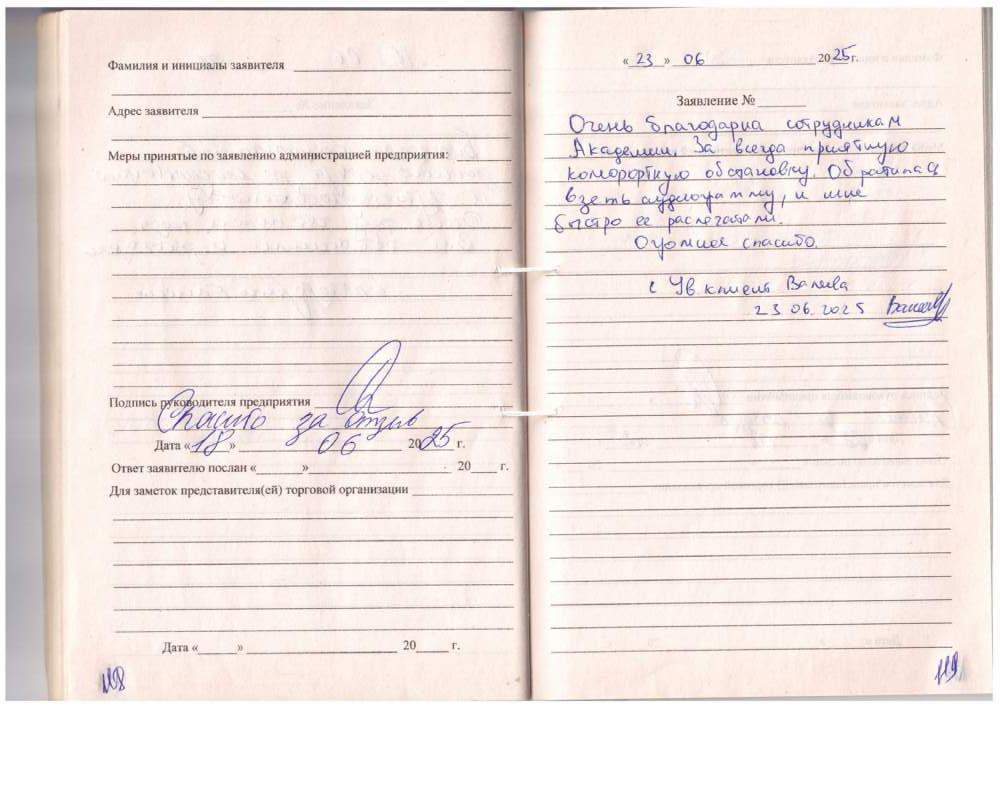 Фамилия и инициалы заявителя
Адрес заявителя
Меры принятые по заявлению администрацией предприятия:
Подпись руководителя предприятия
Спасибо за отзыв
Дата «18» 06 2025 г.
Ответ заявителю послан «    »    20    г.
Для заметок представителя(ей) торговой организации
Дата «    »    20    г.
118
«23» 06 2025г.
Заявление №
Очень благодарна сотрудникам
Академии. За всегда приятную
комфортную обстановку. Обратилась
взеть аудиограмму, и мне
быстро ее распечатали.
Огромное спасибо.
с Ув. Валиева
23 06. 2025
119